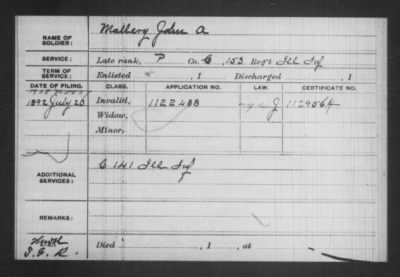 NAME OF SOLDIER: Mulbery John A
SERVICE: Late rank, P Co. G, 153 Reg't Ill Inf
TERM OF SERVICE: Enlisted , 1 Discharged , 1
DATE OF FILING. CLASS. APPLICATION NO. LAW. CERTIFICATE NO.
1892 July 25 Invalid, 1122488 J 1129564
Widow,
Minor,
ADDITIONAL SERVICES: G 141 Ill Inf
REMARKS:
Died , 1 , at